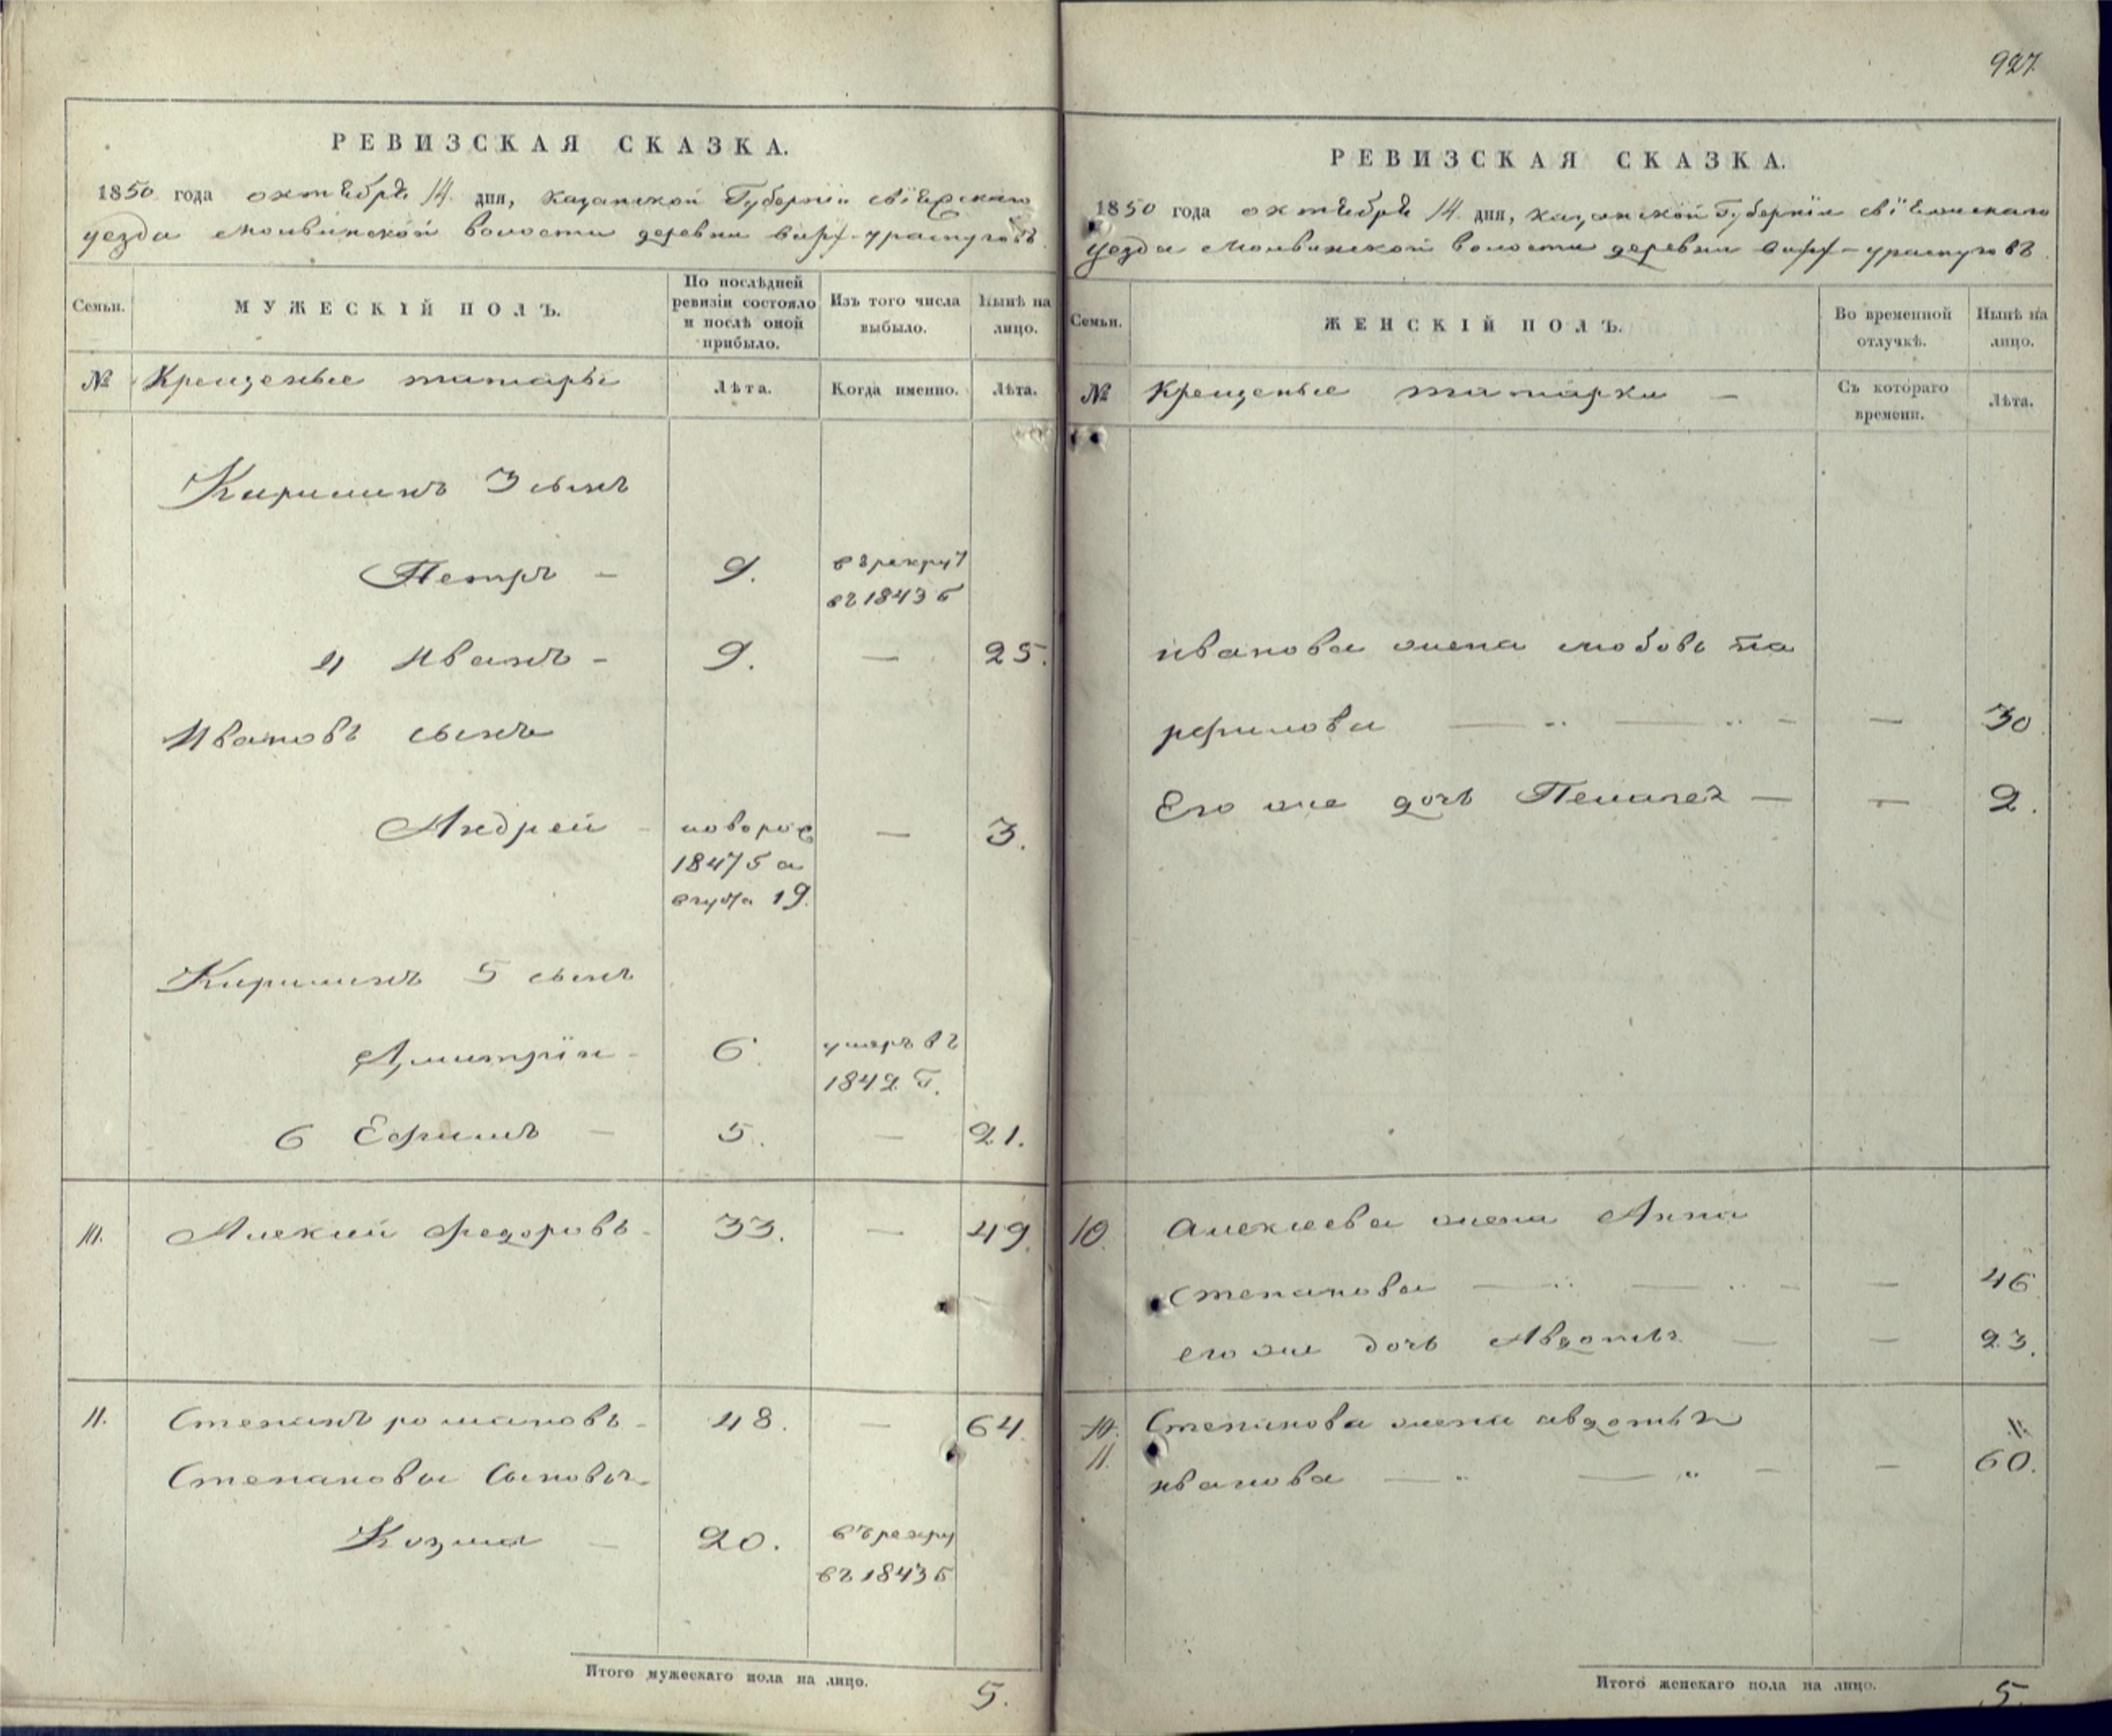 927.
РЕВИЗСКАЯ СКАЗКА.
1850 года октября 14 дня, казанской Губернiи свiяжскаго
уезда Молвинской волости деревни бифф-ураспуговъ
Семьи.
МУЖЕСКІЙ ПОЛЪ.
По послѣдней
ревизіи состояло
и послѣ оной
прибыло.
Изъ того числа
выбыло.
Нынѣ на
лицо.
№
Крещеные татары
Лѣта.
Когда именно.
Лѣта.
Кирилинъ 3 сынъ
Петръ — 9. въ рекрут
въ 1843 г
4 Иванъ — 9. — 25.
Ивановъ сынъ
Андрей — новорож — 3.
1847 г а
вгуста 19.
Кирилинъ 5 сынъ
Дмитрiй — 6. умеръ въ
1842 г.
6 Ефимъ — 5. — 21.
10. Алексей Федоровъ — 33. — 49.
11. Степанъ романовъ — 48. — 64.
Степановы Сыновья
Козма — 20. въ рекру
въ 1843 г
Итого мужескаго пола на лицо.
5.
РЕВИЗСКАЯ СКАЗКА.
1850 года октября 14 дня, казанской Губернiи свiяжскаго
уезда Молвинской волости деревни бифф-ураспуговъ
Семьи.
ЖЕНСКІЙ ПОЛЪ.
Во временной
отлучкѣ.
Нынѣ на
лицо.
№
Крещеные татарки —
Съ котораго
времени.
Лѣта.
иванова жена любовь па
рфилова — — — 30
Его же дочь Пелагея — — 2.
10. Алексеева жена Анна
Степанова — — — 46
его же дочь Авдотья — — 23.
10. Степанова жена авдотья
11. иванова — — — 60.
Итого женскаго пола на лицо.
5.